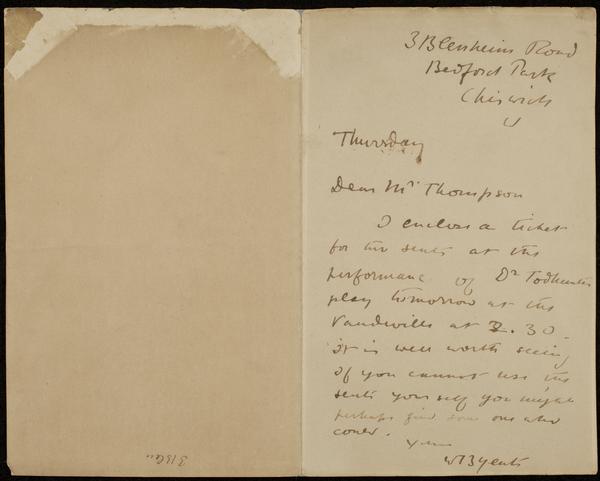 3 Blenheim Road
Bedford Park
Chiswick
W
Thursday
Dear Mr Thompson
I enclose a ticket
for two seats at the
performance of Dr Todhunters
play tomorrow at the
Vaudeville at 2.30.
it is well worth seeing
If you cannot use the
seats your self you might
perhaps find some one who
could.
Yours
WB Yeats
3 Blen